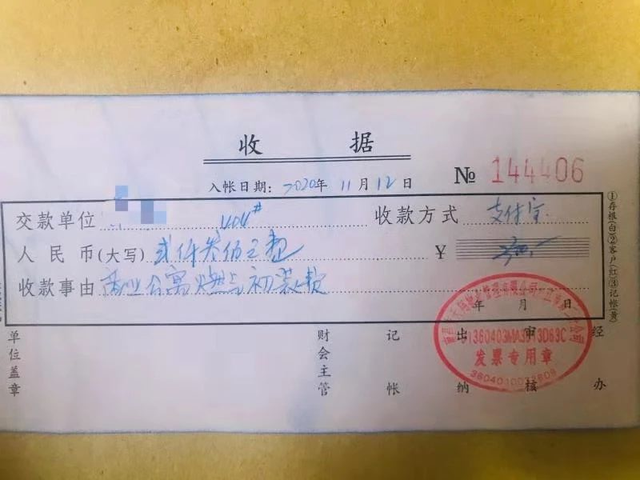 收 据
入帐日期：2020年 11月 12日 № 144406
交款单位 404# 收款方式 支付宝
人民币(大写) 贰仟叁佰元整 ¥
收款事由 商业公寓燃气初装款
年 月 日
单位盖章 财会主管 记帐 出纳 审核 经办
①存根(白)②客户(红)③记帐(黄)
发票专用章